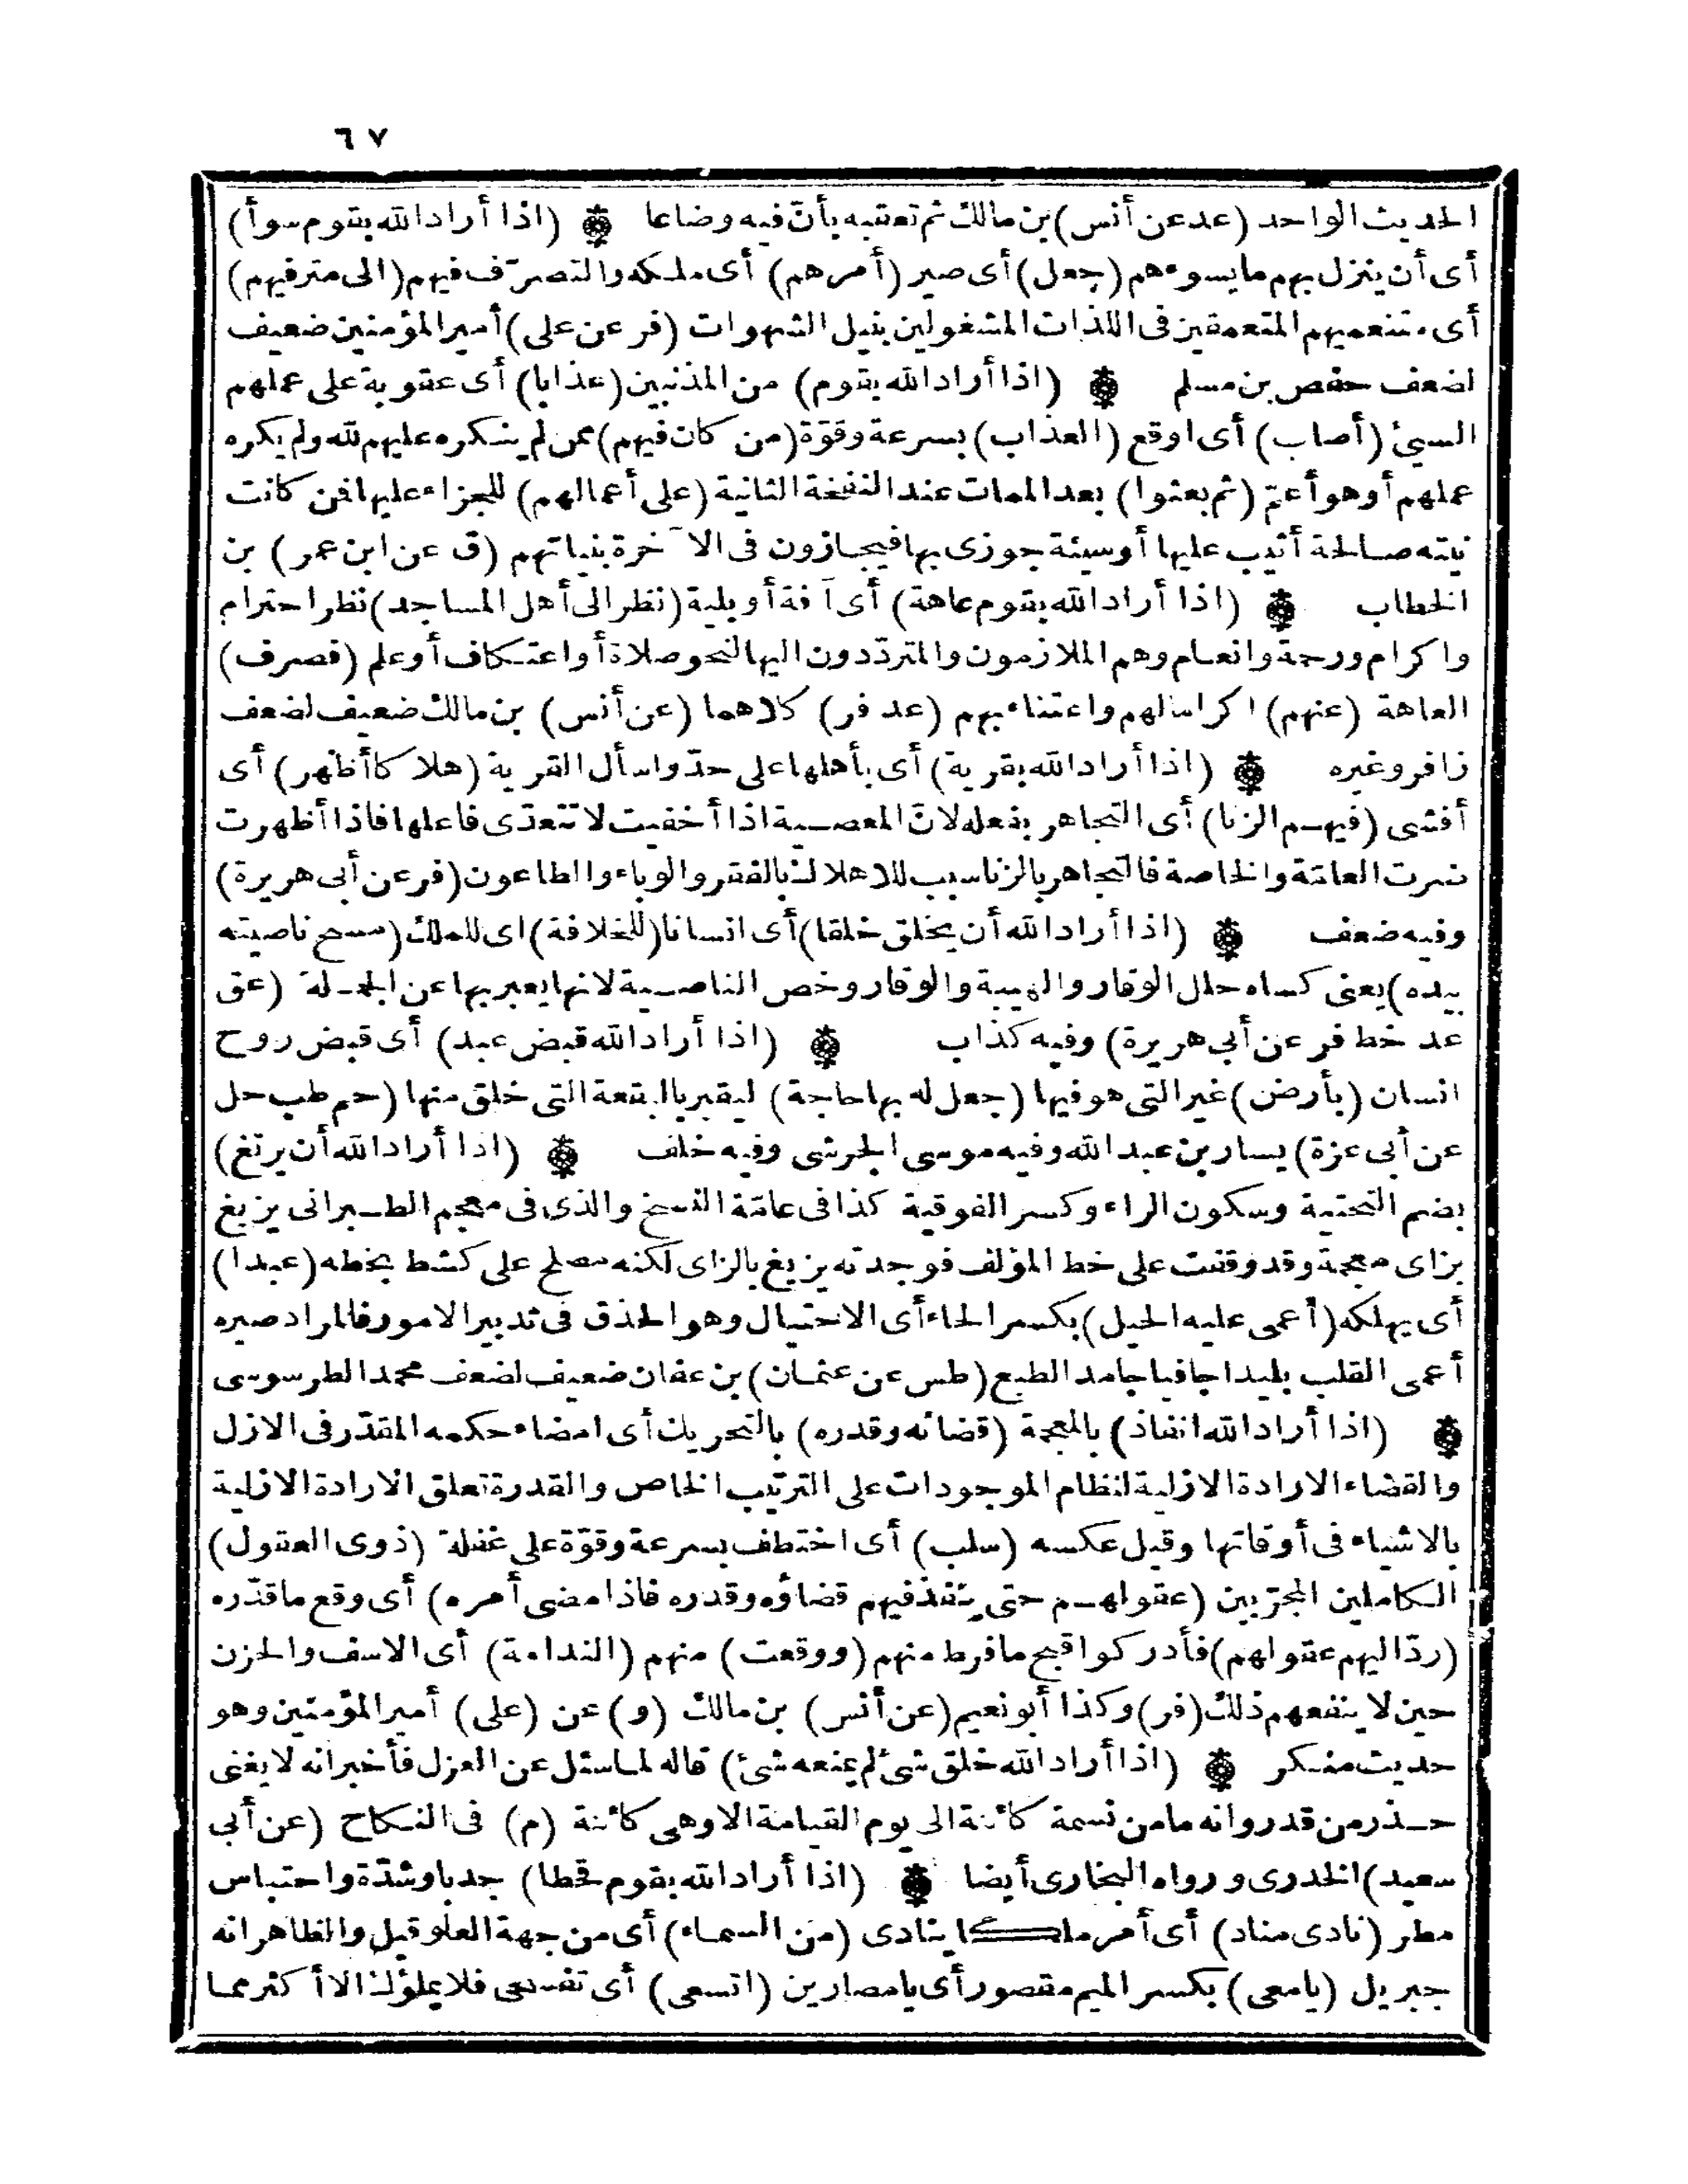 ٦٧
الحديث الواحد (عد عن أنس) بن مالك ثم تعقبه بأنّ فيه وضاعا ۞ (اذا أراد الله بقوم سوأ)
أى أن ينزل بهم ما يسوءهم (جعل) أى صير (أمرهم) أى ملكه والتصرّف فيهم (الى مترفيهم)
أى متنعميهم المتعمقين فى اللذات المشغولين بنيل الشهوات (فر عن على) أمير المؤمنين ضعيف
لضعف حفص بن مسلم ۞ (اذا أراد الله بقوم) من المذنبين (عذابا) أى عقوبة على عملهم
السيئ (أصاب) أى اوقع (العذاب) بسرعة وقوّة (من كان فيهم) ممن لم ينكره عليهم لله ولم يكره
عملهم أو هو أعمّ (ثم بعثوا) بعد الممات عند النفخة الثانية (على أعمالهم) للجزاء عليها فمن كانت
نيته صالحة أثيب عليها أو سيئة جوزى بها فيجازون فى الآخرة بنياتهم (ق عن ابن عمر) بن
الخطاب ۞ (اذا أراد الله بقوم عاهة) أى آفة أو بلية (نظر الى أهل المساجد) نظر احترام
واكرام ورحمة وانعام وهم الملازمون والمتردّدون اليها لنحو صلاة أو اعتكاف أو علم (فصرف)
العاهة (عنهم) اكراما لهم واعتناء بهم (عد فر) كلاهما (عن أنس) بن مالك ضعيف لضعف
زافر وغيره ۞ (اذا أراد الله بقرية) أى بأهلها على حدّ واسأل القرية (هلاكا أظهر) أى
أفشى (فيهم الزنا) أى التجاهر بفعله لانّ المعصية اذا أخفيت لا تتعدّى فاعلها فاذا أظهرت
ضرت العامّة والخاصة فالتجاهر بالزنا سبب للاهلاك بالفقر والوباء والطاعون (فر عن أبى هريرة)
وفيه ضعف ۞ (اذا أراد الله أن يخلق خلقا) أى انسانا (للخلافة) اى للملك (مسح ناصيته
بيده) يعنى كساه حلل الوقار والهيبة والوقار وخص الناصية لانها يعبر بها عن الجملة (عق
عد خط فر عن أبي هريرة) وفيه كذاب ۞ (اذا أراد الله قبض عبد) أى قبض روح
انسان (بأرض) غير التى هو فيها (جعل له بها حاجة) ليقبر بالبقعة التى خلق منها (حم طب حل
عن أبى عزة) يسار بن عبد الله وفيه موسى الجرشى وفيه خلف ۞ (اذا أراد الله أن يرتغ)
بضم التحتية وسكون الراء وكسر الفوقية كذا فى عامّة النسخ والذى فى معجم الطبرانى يزيغ
بزاى معجمة وقد وقفت على خط المؤلف فوجدته يزيغ بالزاى لكنه مصلح على كشط بخطه (عبدا)
أى يهلكه (أعمى عليه الحيل) بكسر الحاء أى الاحتيال وهو الحذق فى تدبير الامور فالمراد صيره
أعمى القلب بليدا جافيا جامد الطبع (طس عن عثمان) بن عفان ضعيف لضعف محمد الطرسوسى
۞ (اذا أراد الله انفاذ) بالمعجمة (قضائه وقدره) بالتحريك أى امضاء حكمه المقدّر فى الازل
والقضاء الارادة الازلية لنظام الموجودات على الترتيب الخاص والقدرة تعلق الارادة الازلية
بالاشياء فى أوقاتها وقيل عكسه (سلب) أى اختطف بسرعة وقوّة على غفلة (ذوى العقول)
الكاملين المجرّبين (عقولهم حتى ينفذ فيهم قضاؤه وقدره فاذا مضى أمره) أى وقع ما قدّره
(ردّ اليهم عقولهم) فأدركوا قبح ما فرط منهم (ووقعت) منهم (الندامة) أى الاسف والحزن
حين لا ينفعهم ذلك (فر) وكذا أبو نعيم (عن أنس) بن مالك (و) عن (على) أمير المؤمنين وهو
حديث منكر ۞ (اذا أراد الله خلق شئ لم يمنعه شئ) قاله لما سئل عن العزل فأخبر انه لا يغنى
حذر من قدر وانه ما من نسمة كائنة الى يوم القيامة الا وهى كائنة (م) فى النكاح (عن أبي
سعيد) الخدرى ورواه البخارى أيضا ۞ (اذا أراد الله بقوم قحطا) جدبا وشدّة واحتباس
مطر (نادى مناد) أى أمر ملكا ينادى (من السماء) أى من جهة العلو قيل والظاهر انه
جبريل (يامعى) بكسر الميم مقصور أى يا مصارين (اتسعى) أى تفسحى فلا يملؤك الا أكثر مما